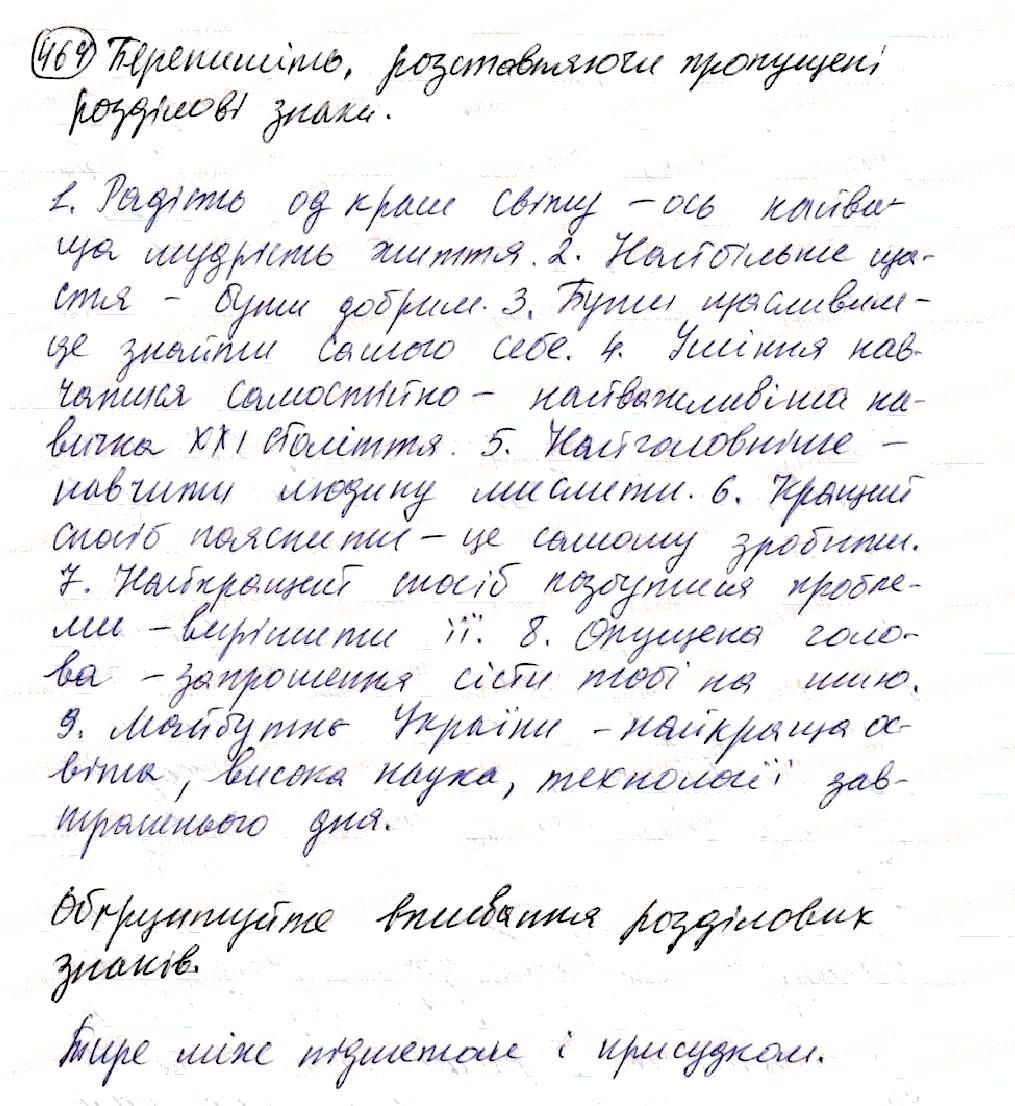 467 Перепишіть, розставляючи пропущені
розділові знаки.
1. Радість од краси світу – ось найви-
ща мудрість життя. 2. Найбільше ща-
стя – бути добрим. 3. Бути щасливим –
це знайти самого себе. 4. Уміння нав-
чатися самостійно – найважливіша на-
вичка XXI століття. 5. Найголовніше –
навчити людину мислити. 6. Кращий
спосіб пояснити – це самому зробити.
7. Найкращий спосіб позбутися пробле-
ми – вирішити її. 8. Опущена голо-
ва – запрошення сісти тобі на шию.
9. Майбутнє України – найкраща ос-
віта, висока наука, технології зав-
трашнього дня.
Обґрунтуйте вживання розділових
знаків.
Тире між підметом і присудком.